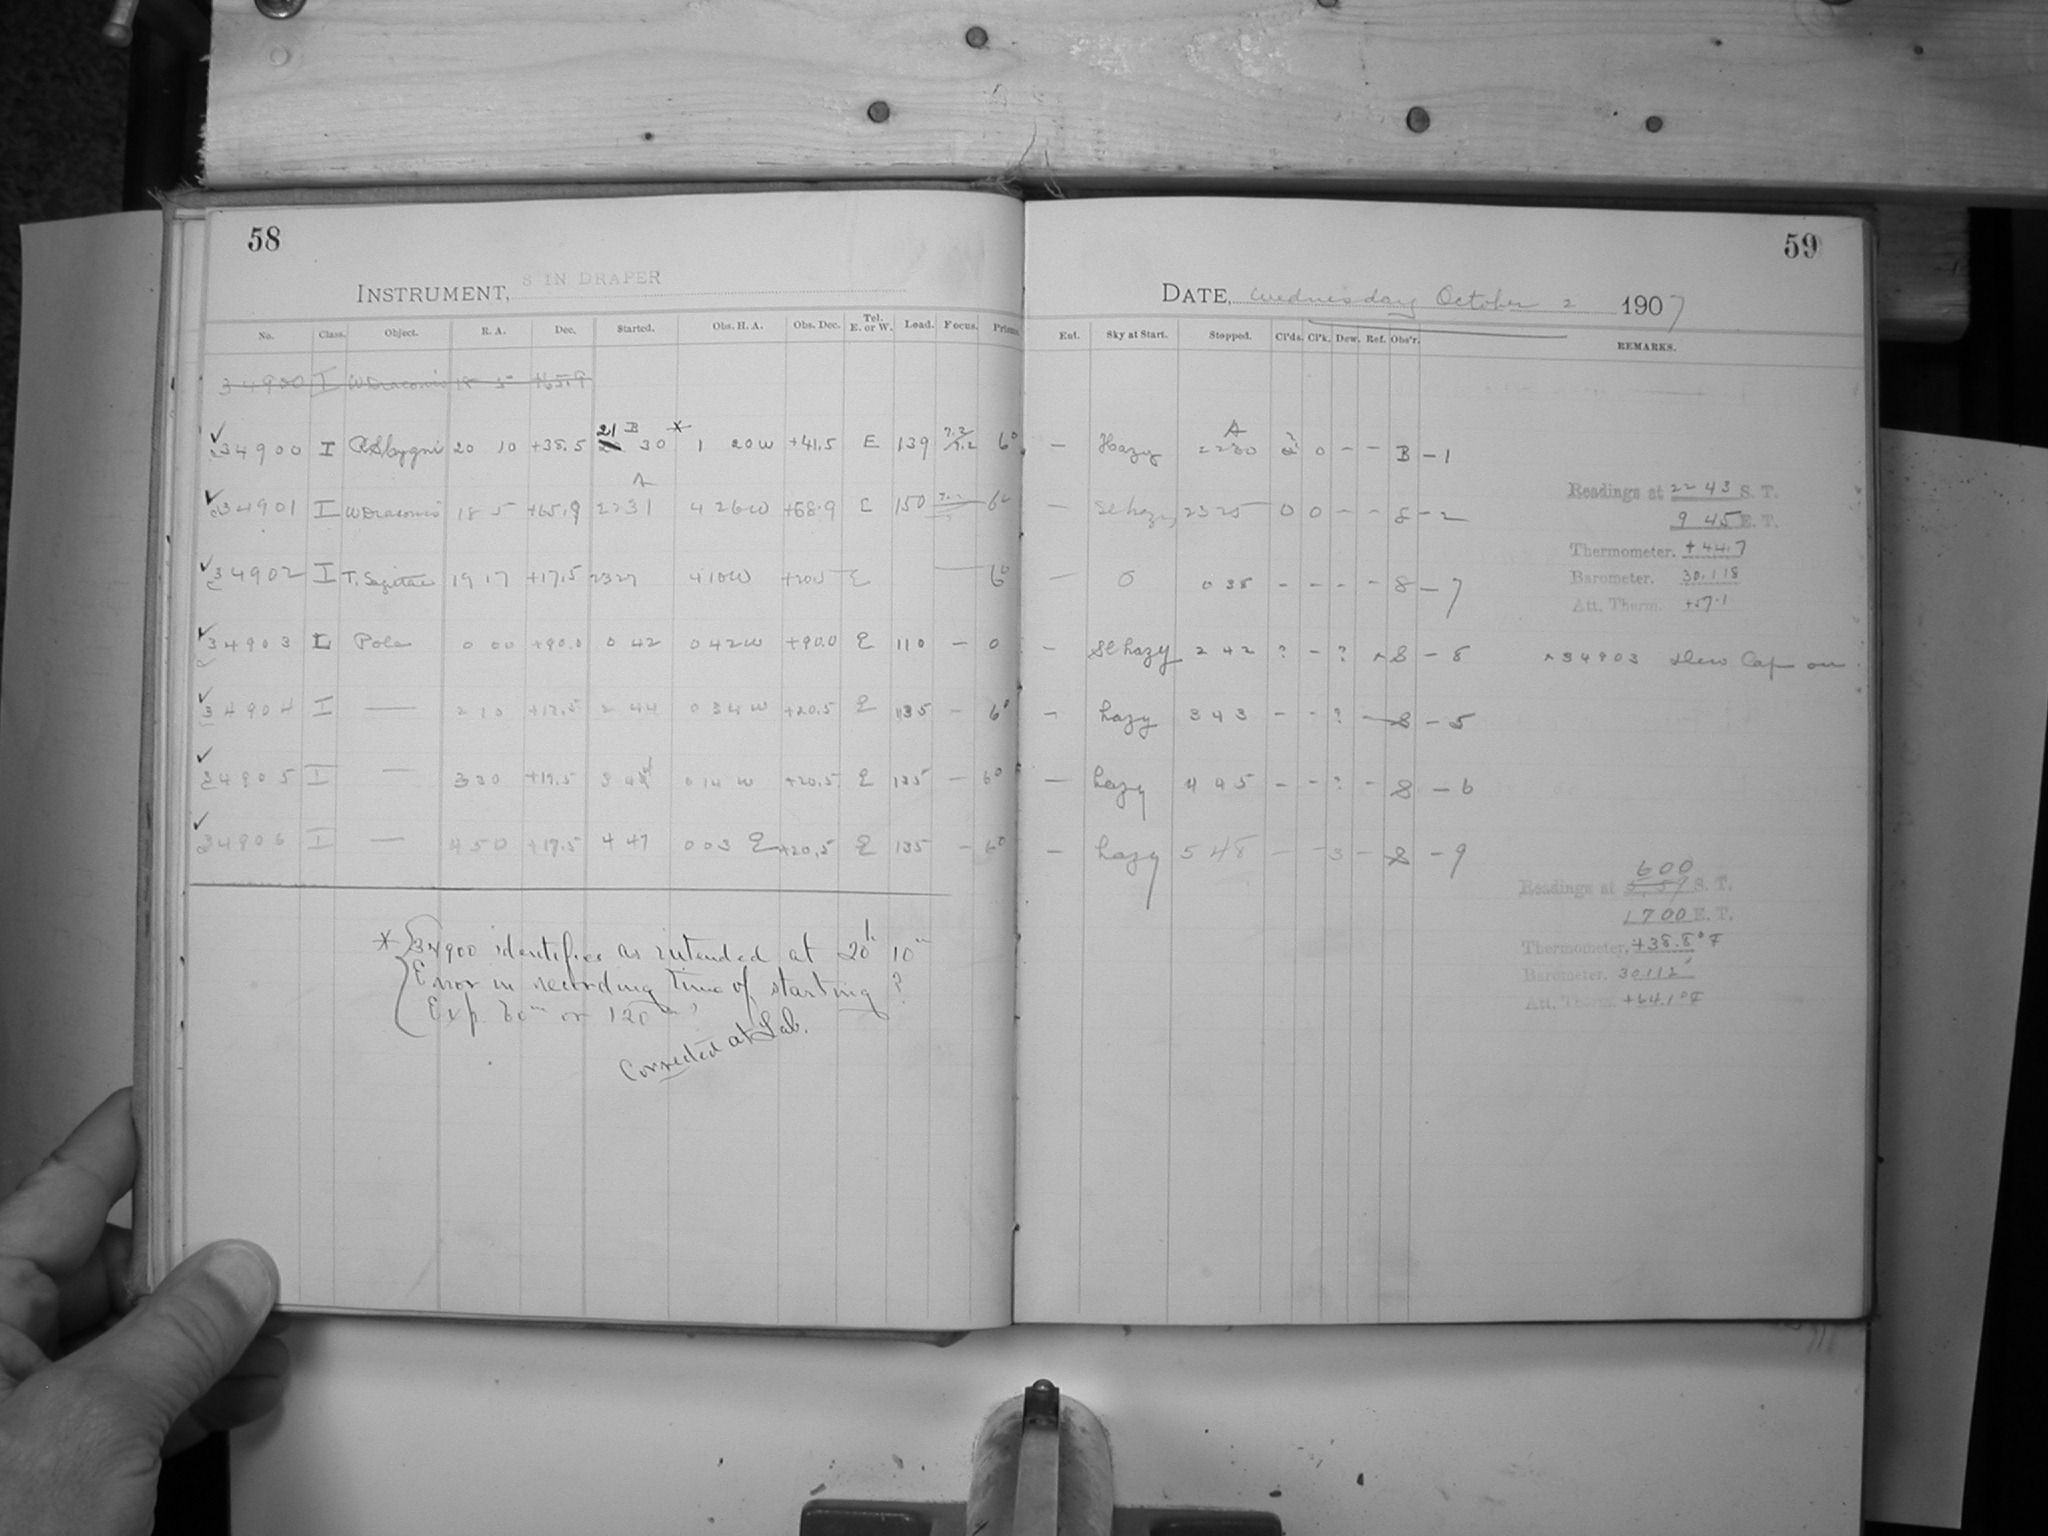 58
INSTRUMENT, 8 IN DRAPER
No. Class. Object. R. A. Dec. Started. Obs. H. A. Obs. Dec. Tel. E. or W. Load. Focus. Prism.
34900 I W Draconis 18 5 +65.9
34900 I RS Cygni 20 10 +38.5 21 30 * 1 20 W +41.5 E 139 7.2 6°
34901 I W Draconis 18 5 +65.9 2231 4 26 W +68.9 E 150 6°
34902 I T. Sagittae 19 17 +17.5 2327 4 10 W +20.5 E 6°
34903 L Pole 0 00 +90.0 0 42 0 42 W +90.0 E 110 — 0
34904 I — 2 10 +17.5 2 44 0 34 W +20.5 E 135 - 6°
34905 I — 3 30 +17.5 3 44 0 14 W +20.5 E 135 — 6°
34906 I — 4 50 +17.5 4 47 0 03 E +20.5 E 135 - 6°
* 34900 identifies as intended at 20h 10m
Error in recording time of starting?
Exp. 60m or 120m?
Corrected at Lab.
59
DATE, Wednesday October 2 1907
Ent. Sky at Start. Stopped. Cl'ds. Cl'k. Dew. Ref. Obs'r. REMARKS.
— Hazy 2230 0 - - B - 1
— Sl hazy 2325 0 0 - - 8 - 2
— 0 0 38 - - - - 8 - 7
- Sl hazy 2 42 ? - ? 8 - 8
- hazy 3 43 - - ? - 8 - 5
— hazy 4 45 - - ? - 8 - 6
— hazy 5 48 — - 3 - 8 - 9
Readings at 22 43 S. T.
9 45 E. T.
Thermometer. +44.7
Barometer. 30.118
Att. Therm. +57.1
34903 Dew Cap on
600
Readings at 5.59 S. T.
1700 E. T.
Thermometer. +38.8° F
Barometer. 30.112
Att. Therm. +64.1°F